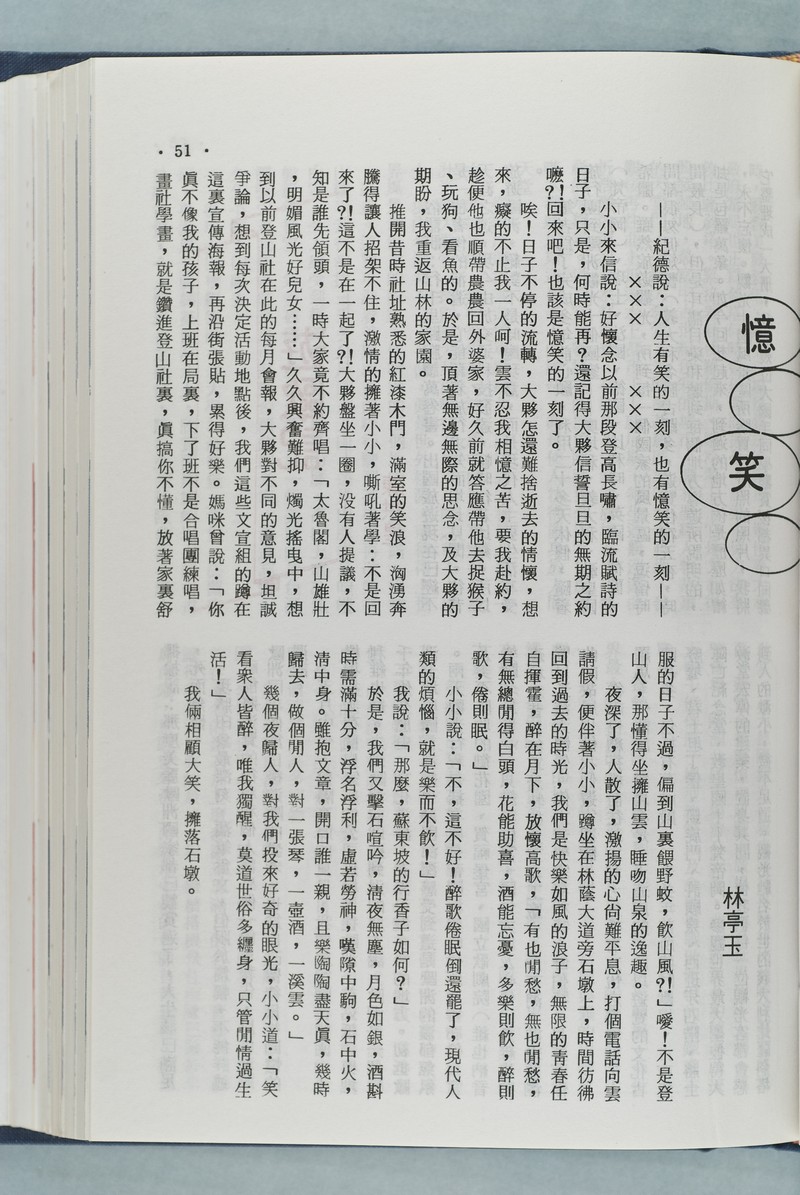 憶笑
林亭玉
——紀德說：人生有笑的一刻，也有憶笑的一刻——
××× ×××
小小來信說：好懷念以前那段登高長嘯，臨流賦詩的
日子，只是，何時能再？還記得大夥信誓旦旦的無期之約
嚒？！回來吧！也該是憶笑的一刻了。
唉！日子不停的流轉，大夥怎還難捨逝去的情懷，想
來，癡的不止我一人呵！雲不忍我相憶之苦，要我赴約，
趁便他也順帶農農回外婆家，好久前就答應帶他去捉猴子
、玩狗、看魚的。於是，頂著無邊無際的思念，及大夥的
期盼，我重返山林的家園。
推開昔時社址熟悉的紅漆木門，滿室的笑浪，洶湧奔
騰得讓人招架不住，激情的擁著小小，嘶吼著學：不是回
來了？！這不是在一起了？！大夥盤坐一圈，没有人提議，不
知是誰先領頭，一時大家竟不約齊唱：「太魯閣，山雄壯
，明媚風光好兒女……」久久興奮難抑，燭光搖曳中，想
到以前登山社在此的每月會報，大夥對不同的意見，坦誠
爭論，想到每次決定活動地點後，我們這些文宣組的蹲在
這裏宣傳海報，再沿街張貼，累得好樂。媽咪曾說：「你
眞不像我的孩子，上班在局裏，下了班不是合唱團練唱，
畫社學畫，就是鑽進登山社裏，眞搞你不懂，放著家裏舒
服的日子不過，偏到山裏餵野蚊，飲山風？！」噯！不是登
山人，那懂得坐擁山雲，睡吻山泉的逸趣。
夜深了，人散了，激揚的心尙難平息，打個電話向雲
請假，便伴著小小，蹲坐在林蔭大道旁石墩上，時間彷彿
回到過去的時光，我們是快樂如風的浪子，無限的靑春任
自揮霍，醉在月下，放懷高歌，「有也閒愁，無也閒愁，
有無總閒得白頭，花能助喜，酒能忘憂，多樂則飲，醉則
歌，倦則眠。」
小小說：「不，這不好！醉歌倦眠倒還罷了，現代人
類的煩惱，就是樂而不飲！」
我說：「那麼，蘇東坡的行香子如何？」
於是，我們又擊石喧吟，淸夜無塵，月色如銀，酒斟
時需滿十分，浮名浮利，虛若勞神，嘆隙中駒，石中火，
淸中身。雖抱文章，開口誰一親，且樂陶陶盡天眞，幾時
歸去，做個閒人，對一張琴，一壺酒，一溪雲。」
幾個夜歸人，對我們投來好奇的眼光，小小道：「笑
看衆人皆醉，唯我獨醒，莫道世俗多纏身，只管閒情過生
活！」
我倆相顧大笑，擁落石墩。
· 51 ·